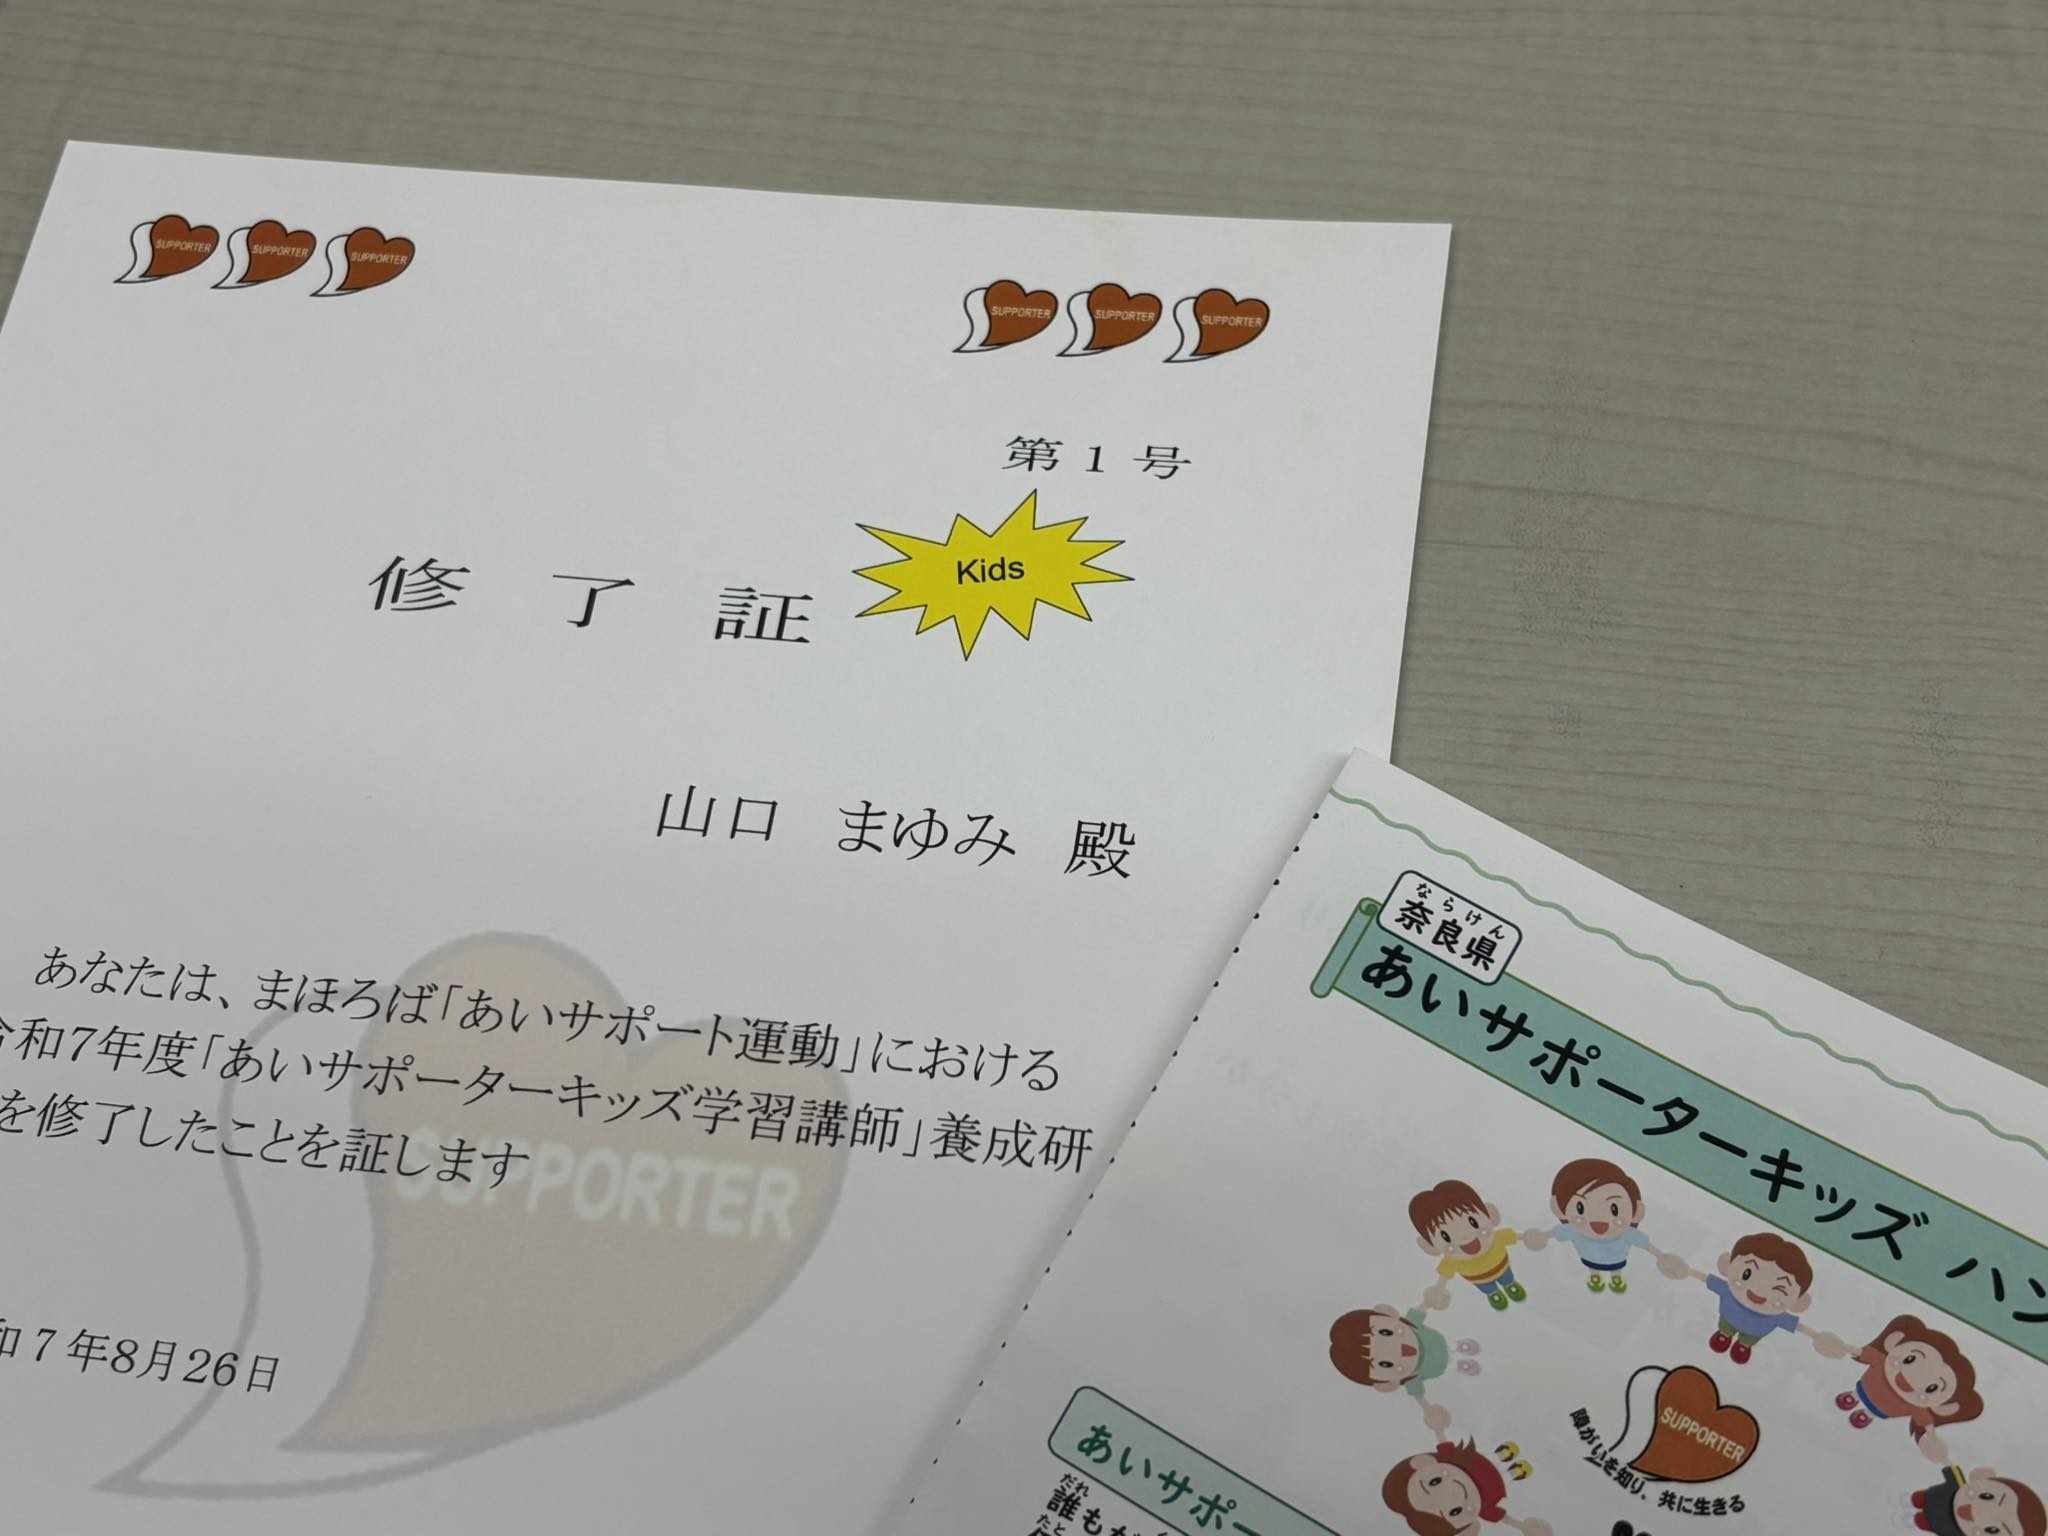 SUPPORTER SUPPORTER SUPPORTER
SUPPORTER SUPPORTER SUPPORTER
第1号
修了証
Kids
山口 まゆみ 殿
あなたは、まほろば「あいサポート運動」における
令和7年度「あいサポーターキッズ学習講師」養成研
を修了したことを証します
SUPPORTER
和7年8月26日
ならけん
奈良県
あいサポーターキッズ ハン
SUPPORTER
障がいを知り、共に生きる
あいサポー
だれ
誰もが